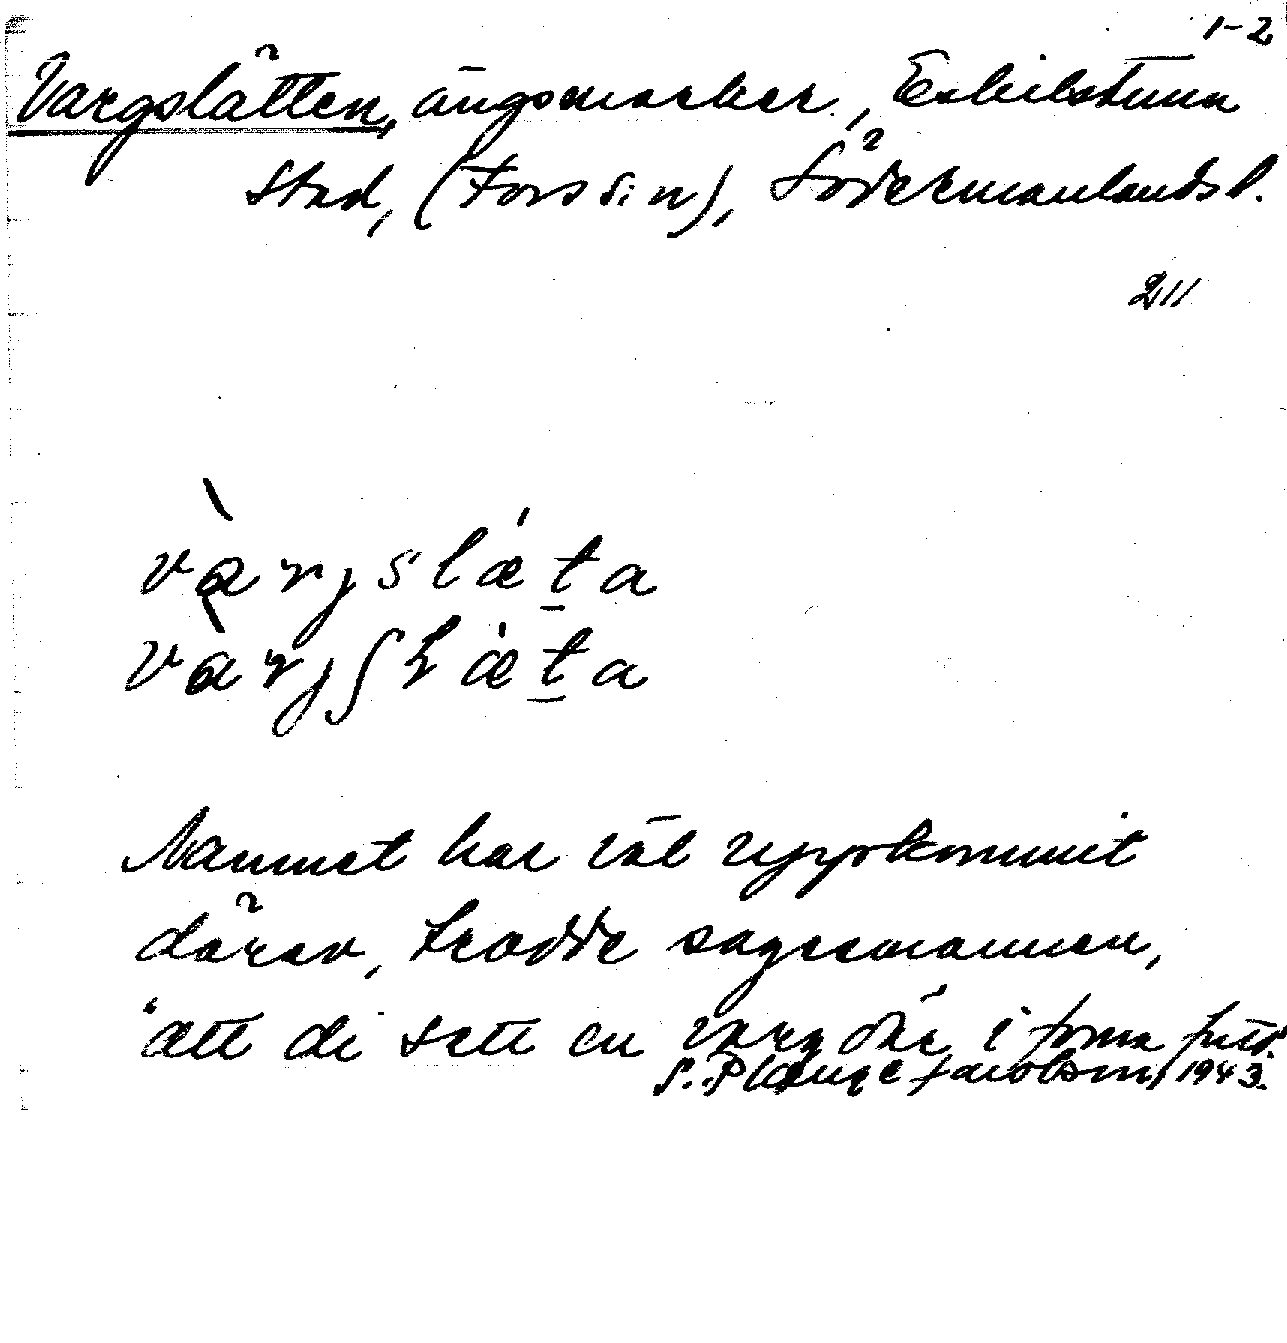 1-2
Vargslätten, ängsmarker, Eskilstuna
stad, (Fors sn), Södermanlands l.
211
värjslæ̀ta
Namnet har väl uppkommit
därav, trodde sagesmannen,
att di sett en varg där i forna
1943.